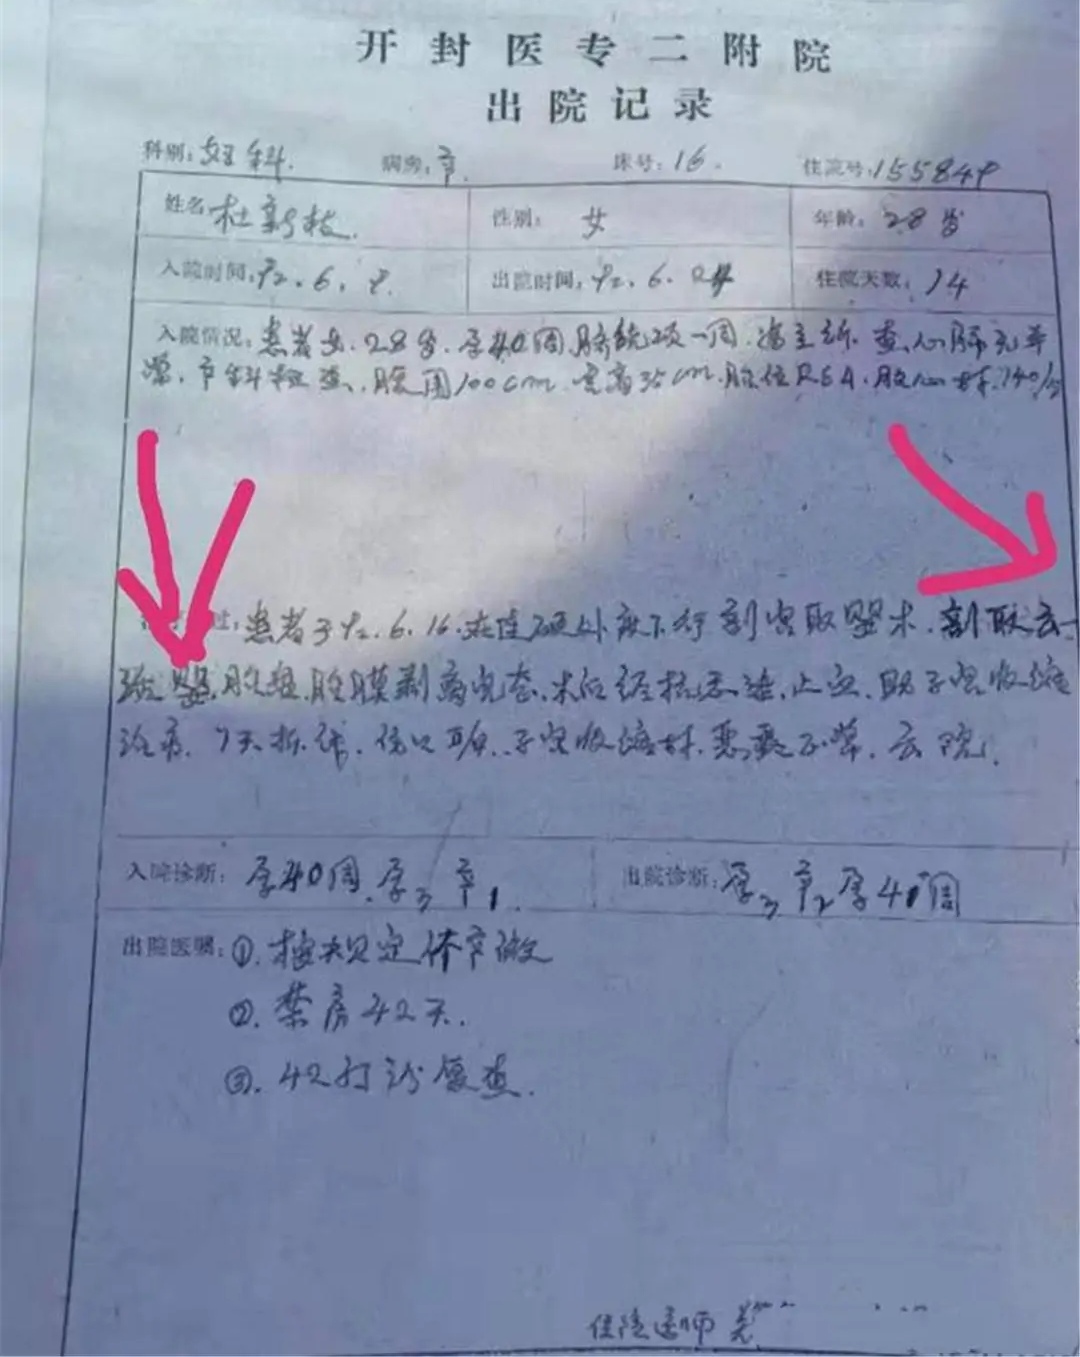 开封医专二附院
出院记录
科别：妇科. 病房：产. 床号：16. 住院号：155849
姓名 杜新枝. 性别： 女 年龄：28岁
入院时间：92.6.9. 出院时间：92.6.24 住院天数：14
入院情况：患者女.28岁.孕40周.脐绕颈一周. 查.心肺无异
常.产科检查.腹围100cm.宫高35cm.胎位RSA.胎心 140/分
过：患者于92.6.16.在硬外麻下行剖宫取婴术.剖取出一
婴.胎盘.胎膜剥离完整.术后经抗感染.止血.助子宫收缩
治疗.7天拆线.伤口 .子宫收缩好.恶露不 .出院.
入院诊断：孕40周.孕3产1. 出院诊断：孕3产2孕40周
出院医嘱：①.按规定休产假
②.禁房42天.
③.42 门诊复查.
住院医师